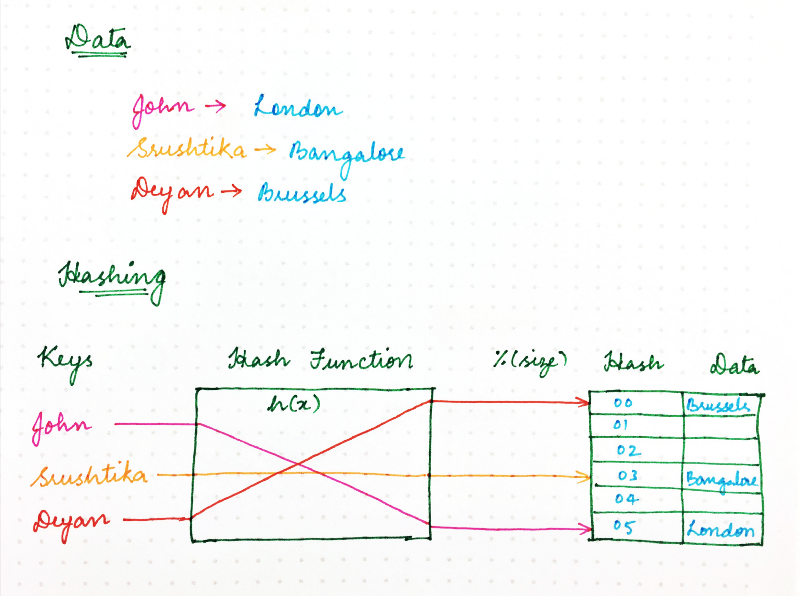 Data
John → London
Srushtika → Bangalore
Deyan → Brussels
Hashing
Keys Hash Function %(size) Hash Data
h(x)
00 Brussels
John 01
02
Srushtika 03 Bangalore
04
Deyan 05 London